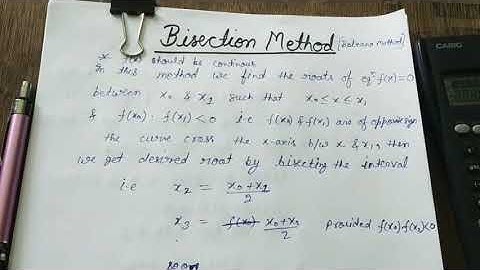 Bisection Method [Bolzano method]
* f(x) should be continous
In this method we find the roots of eqⁿ f(x)=0
between x₀ & x₁ such that x₀≤x≤x₁
& f(x₀)·f(x₁)<0 i.e f(x₀) & f(x₁) are of opposite sign
the curve cross the x-axis b/w x₀ & x₁, then
we get desired root by bisecting the interval
i.e x₂ = x₀+x₁/2
x₃ = f(x₀) x₀+x₂/2 provided f(x₀)f(x₂)<0
CASIO